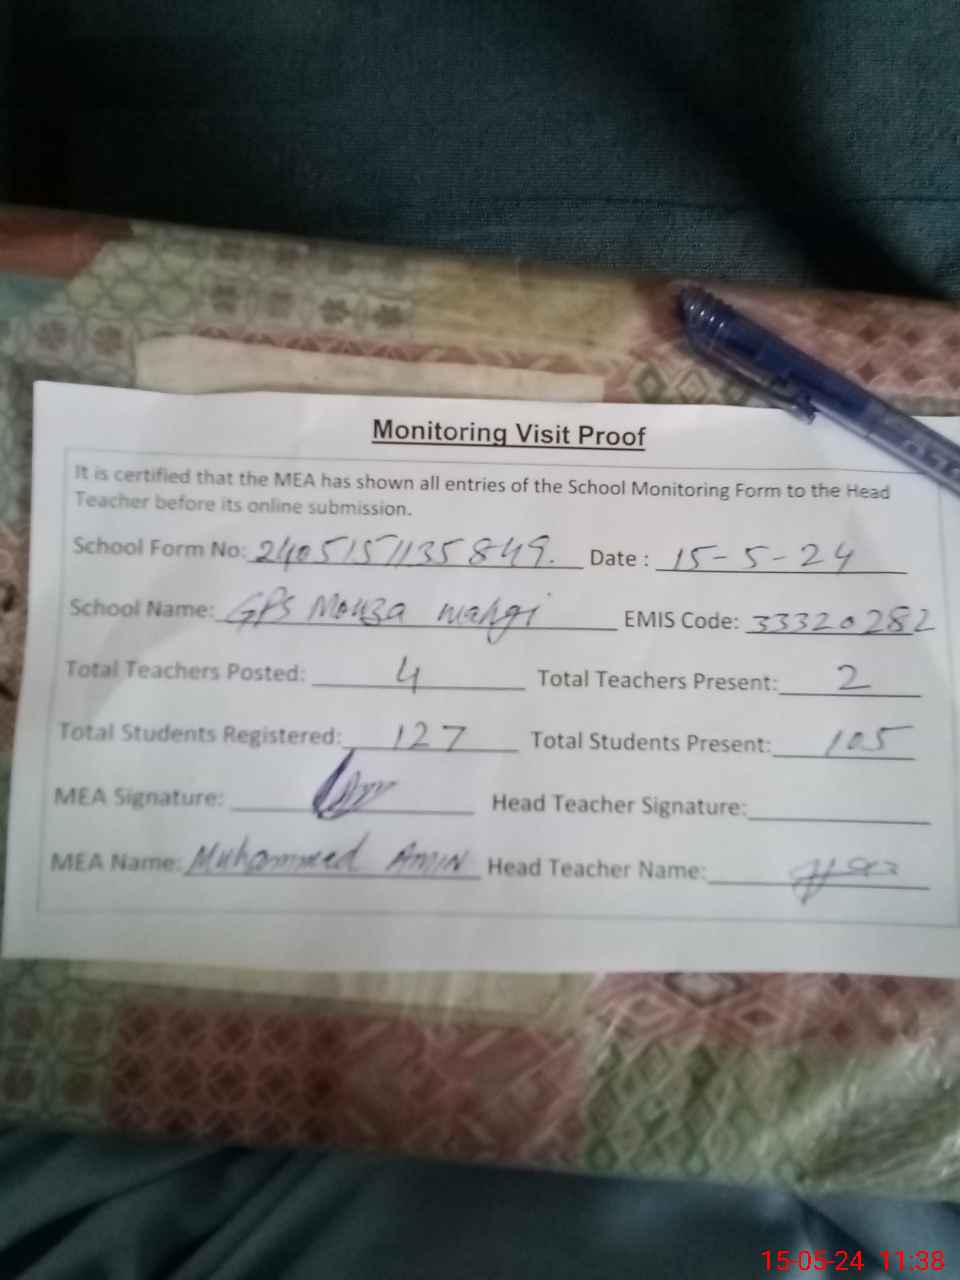 Monitoring Visit Proof
It is certified that the MEA has shown all entries of the School Monitoring Form to the Head
Teacher before its online submission.
School Form No: 2405151135849. Date : 15-5-24
School Name: GPS Mouza mahgi EMIS Code: 33320282
Total Teachers Posted: 4 Total Teachers Present: 2
Total Students Registered: 127 Total Students Present: 105
MEA Signature: Head Teacher Signature:
MEA Name: Muhammed Amin Head Teacher Name:
15-05-24 11:38